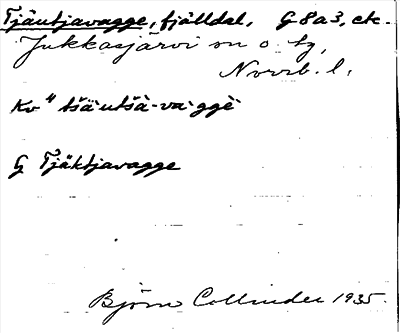 Tjäutjavagge, fjälldal, G8a3, etc.
Jukkasjärvi sn o. tg,
Norrb. l.
Kv 4 tšä·utšà-va·ggè
G Tjäktjavagge
Björn Collinder 1935.